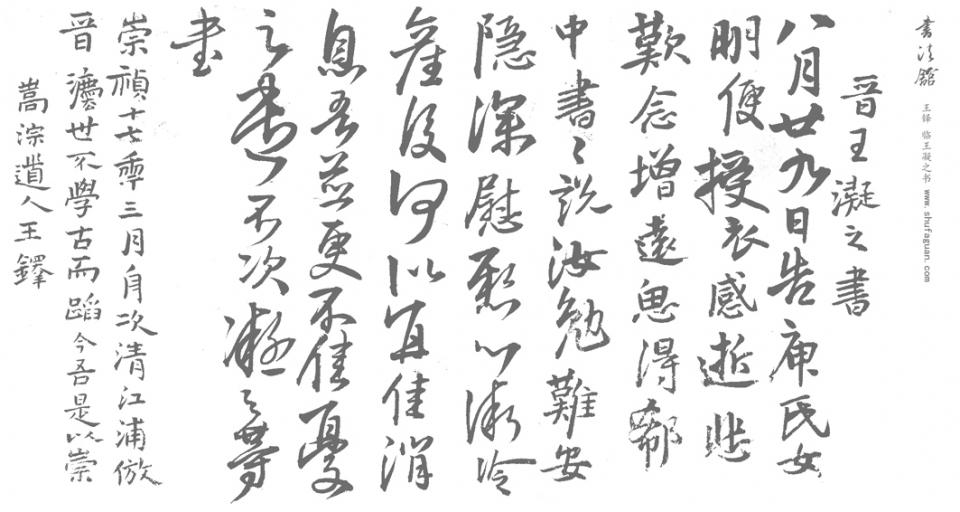 書法館
王铎 临王凝之书 www.shufaguan.com
晉王凝之書
八月廿九日告庾氏女
明便授衣感逝悲
歎念增遠思得郗
中書〻說汝勉難安
隱深慰懸心漸冷
產後何似宜佳消
息吾並更不佳憂
之 不次凝之等
書
崇禎十七年三月舟次清江浦倣
晉 世不學古而蹈今吾是以崇
嵩淙道人王鐸